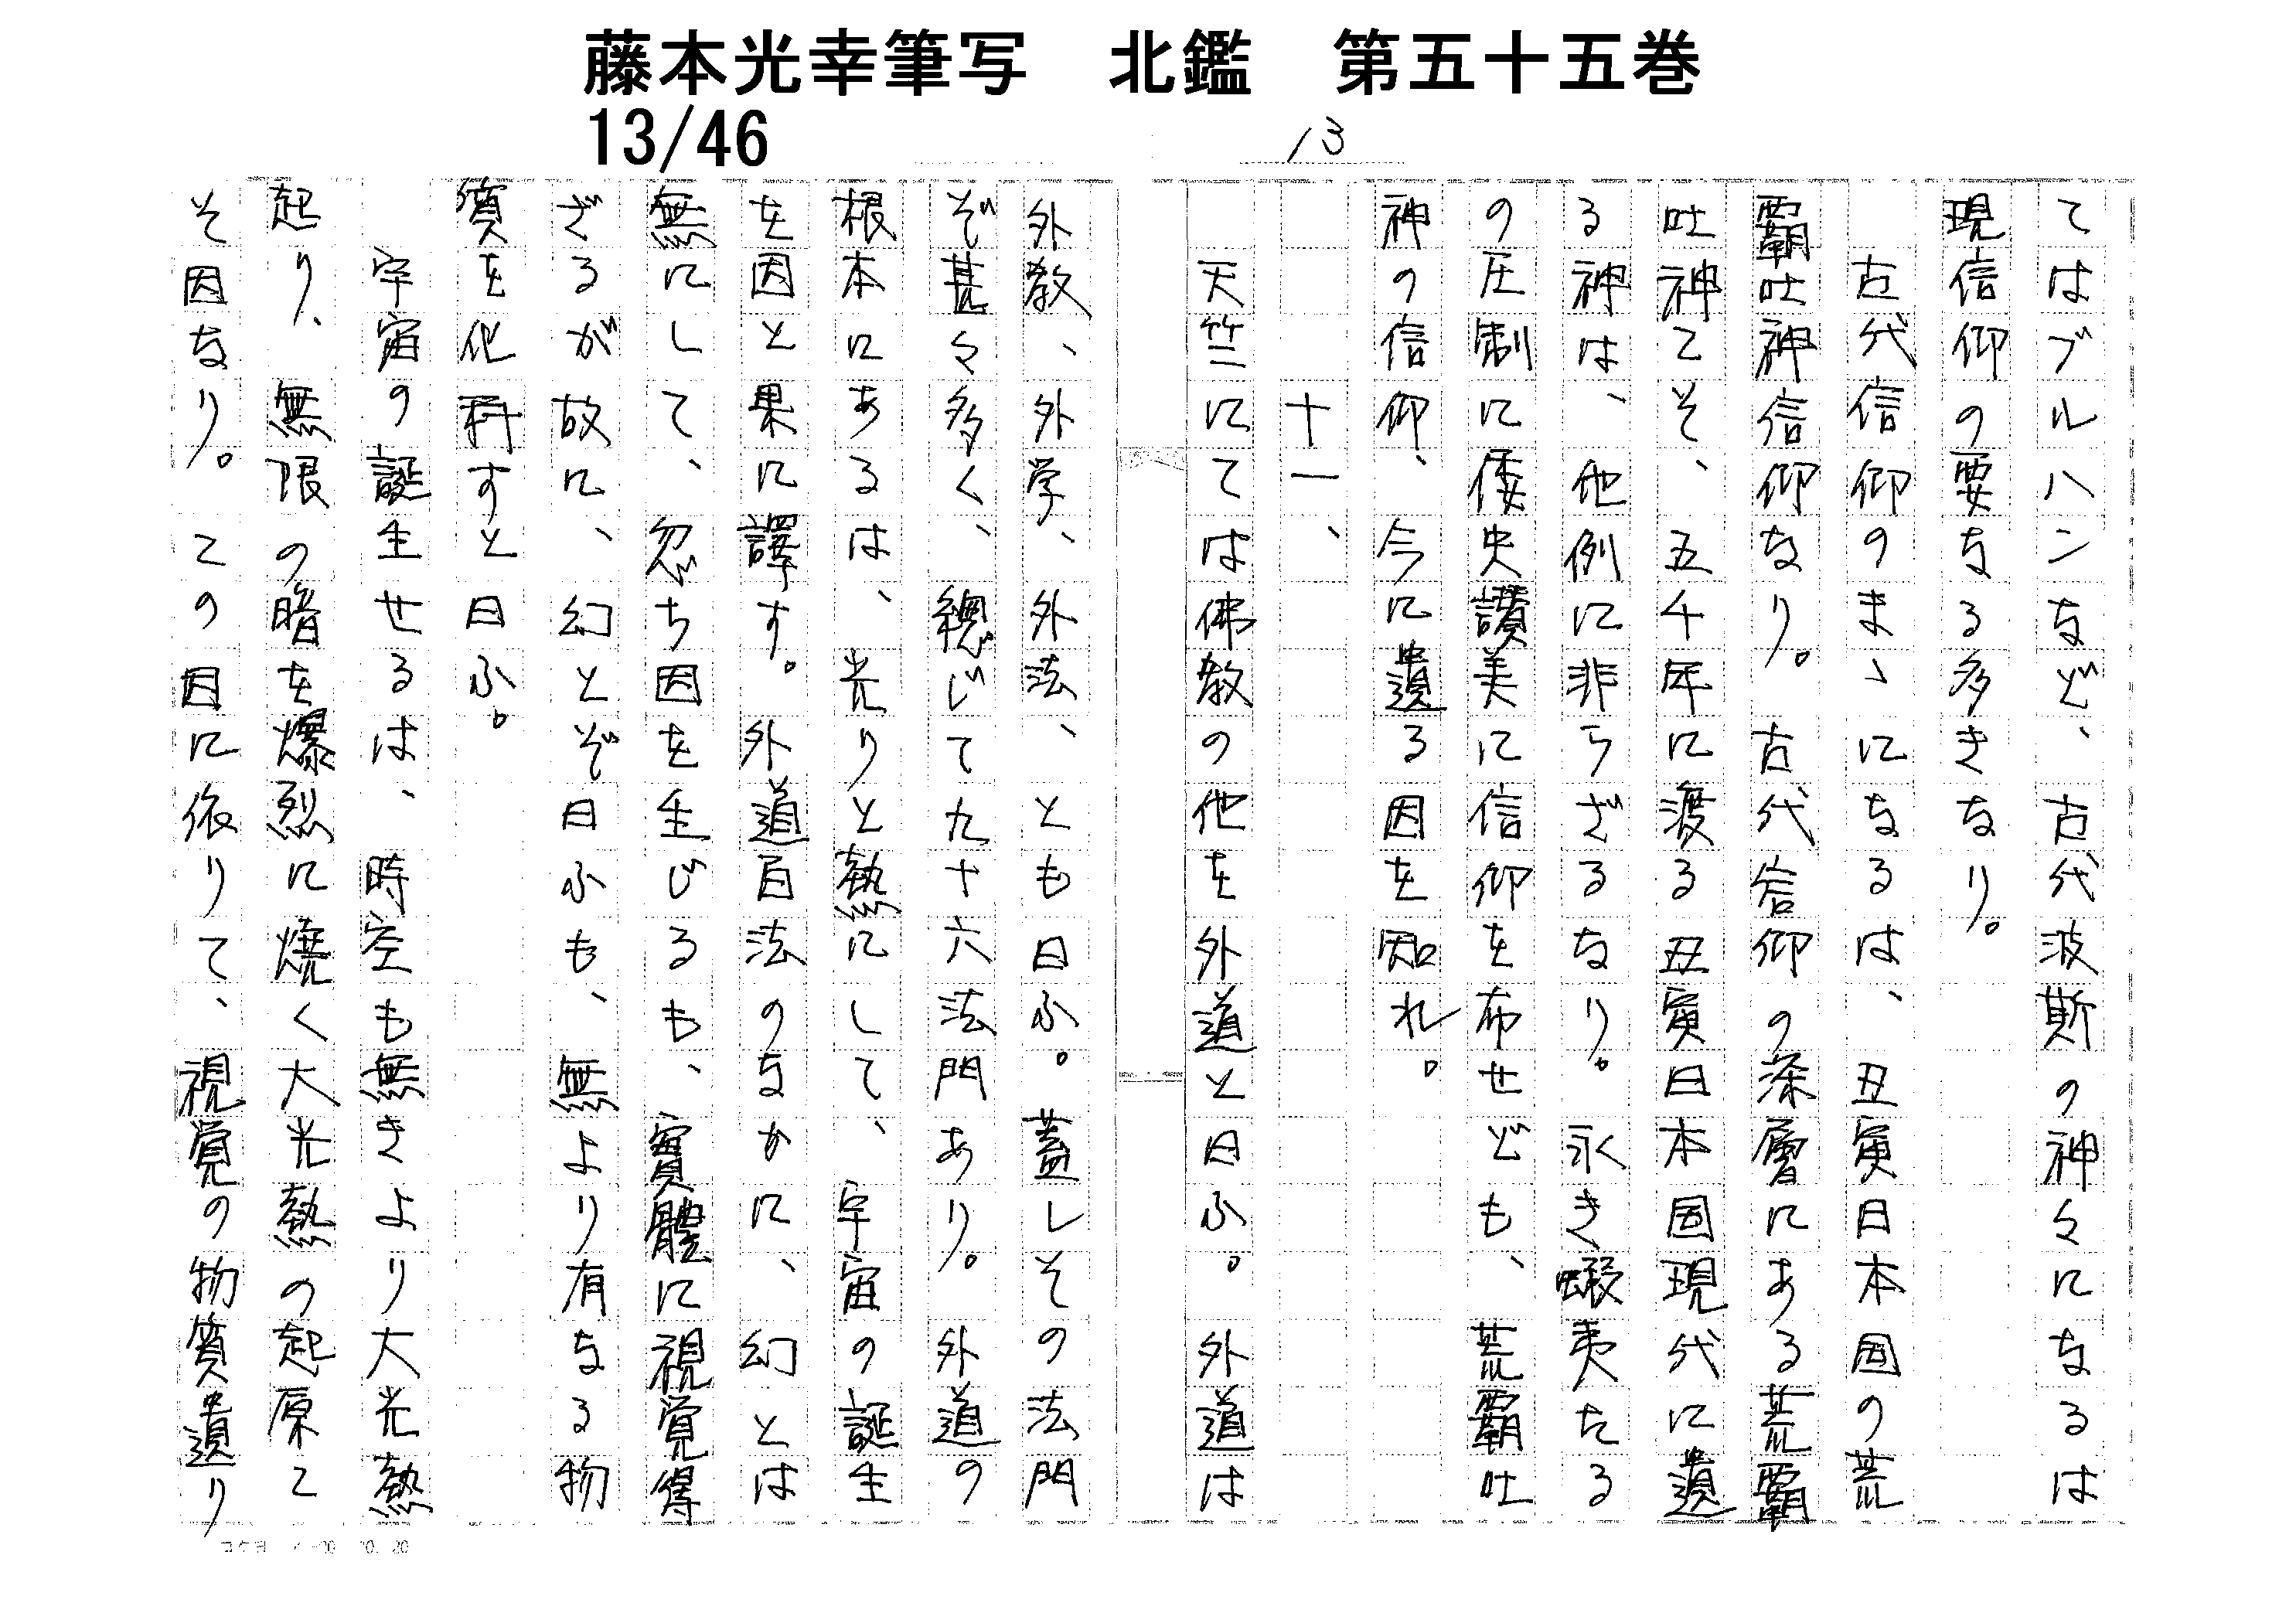 藤本光幸筆写　北鑑　第五十五巻
13/46
13
てはブルハンなど、古代波斯の神々になるは
現信仰の要なる多きなり。
古代信仰のまゝになるは、丑寅日本国の荒
覇吐神信仰なり。古代信仰の深層にある荒覇
吐神こそ、五千年に渡る丑寅日本国現代に遺
る神は、他例に非らざるなり。永き蝦夷たる
の圧制に倭史讃美に信仰を布せども、荒覇吐
神の信仰、今に遺る因を知れ。
十一、
天竺にては佛教の他を外道と曰ふ。外道は
外教、外学、外法、とも曰ふ。蓋しその法門
ぞ甚々多く、總じて九十六法門あり。外道の
根本にあるは、光りと熱にして、宇宙の誕生
を因と果に譯す。外道自法のなかに、幻とは
無にして、忽ち因を生じるも、實體に視覚得
ざるが故に、幻とぞ曰ふも、無より有なる物
質を化科すと曰ふ。
宇宙の誕生せるは、時空も無きより大光熱
起り、無限の暗を爆烈に焼く大光熱の起原こ
そ因なり。この因に依りて、視覚の物質遺り